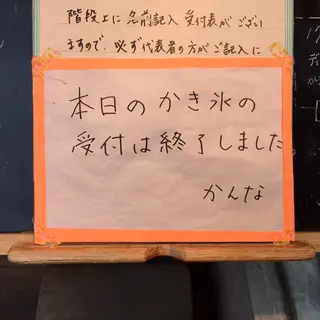 階段上に名前記入受付表がござい
ますので、必ず代表者の方がご記入に
本日のかき氷の
受付は終了しました
かんな